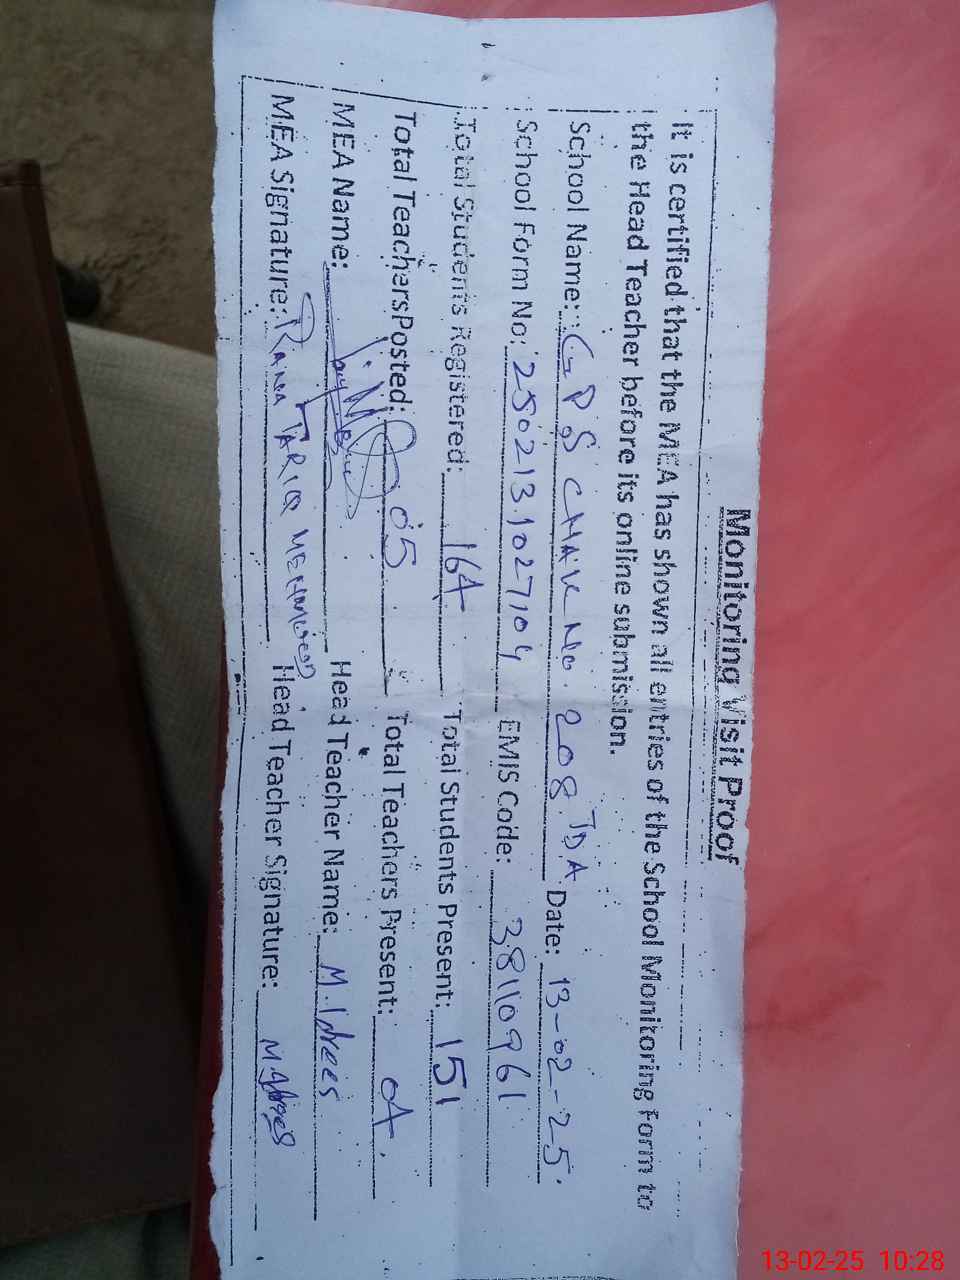 Monitoring Visit Proof
It is certified that the MEA has shown all entries of the School Monitoring Form to
the Head Teacher before its online submission.
School Name: GPS CHAK No. 208 TDA Date: 13-02-25.
School Form No: 2502131027104 EMIS Code: 38110961
Total Students Registered: 164 Total Students Present: 151
Total Teachers Posted: 05 Total Teachers Present: 04.
MEA Name: Head Teacher Name: M. Idrees
MEA Signature: RANA TARIQ MEHMOOD Head Teacher Signature: M. Idrees
13-02-25 10:28